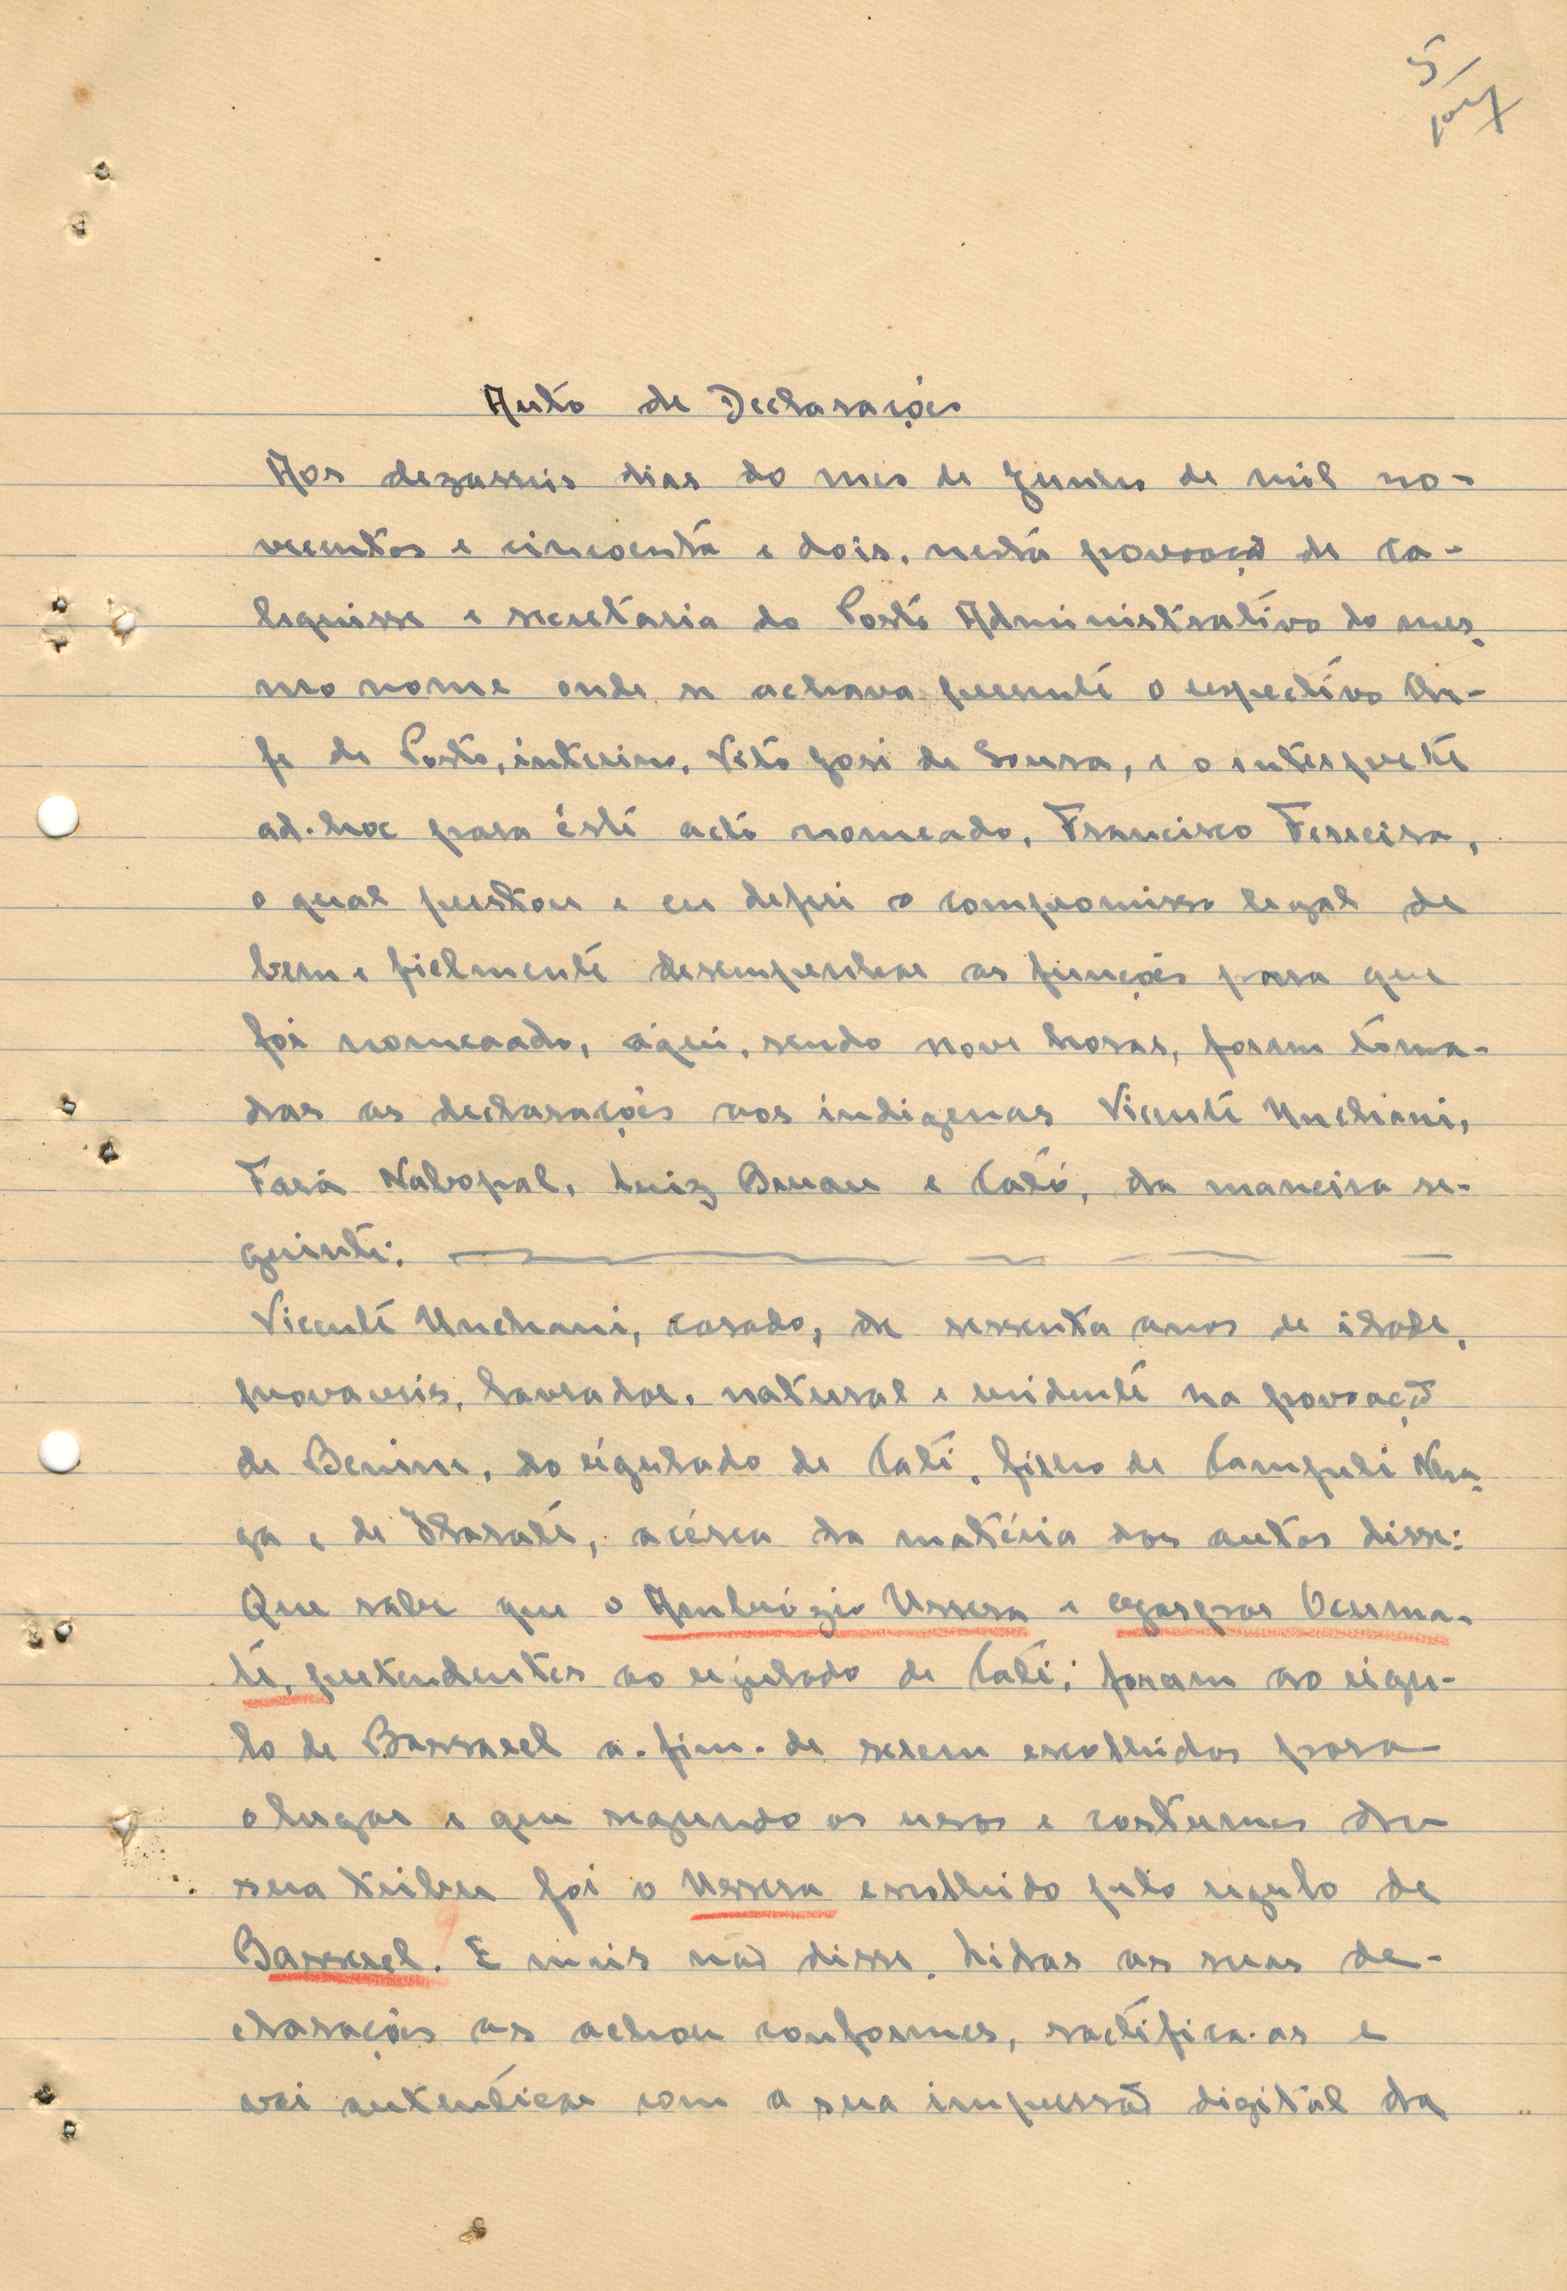 5
Auto de Declarações
Aos dezasseis dias do mês de Junho de mil no-
vecentos e cincoenta e dois, nesta povoação de Ca-
lequisse e secretaria do Posto Administrativo do mes-
mo nome onde se achava presente o respectivo Che-
fe de Posto, interino, Vito José de Sousa, e o interprete
ad-hoc para êste acto nomeado, Francisco Ferreira,
o qual prestou e eu deferi o compromisso legal de
bem e fielmente desempenhar as funções para que
foi nomeaado, aqui, sendo nove horas, foram toma-
das as declarações aos indigenas Vicente Unchani,
Fará Nabopal, Luiz Benau e Cató, da maneira se-
guinte:
Vicente Unchani, casado, de sessenta anos de idade,
provaveis, lavrador, natural e residente na povoação
de Benim, do régulado de Caté, filho de Campuli Nha-
ga e de , acêrca da matéria dos autos disse:
Que sabe que o Ambrózio Ussera e Gaspar Ucuma-
té, pretendentes ao regulado de Caté; foram ao régu-
lo de Bassarel a-fim-de serem escolhidos para
o lugar e que segundo os usos e costumes da
sua tribu foi o Ussera escolhido pelo regulo de
Bassarel. E mais não disse. Lidas as suas de-
clarações as achou conformes, ractifica-as e
vai autenticar com a sua impressão digital da